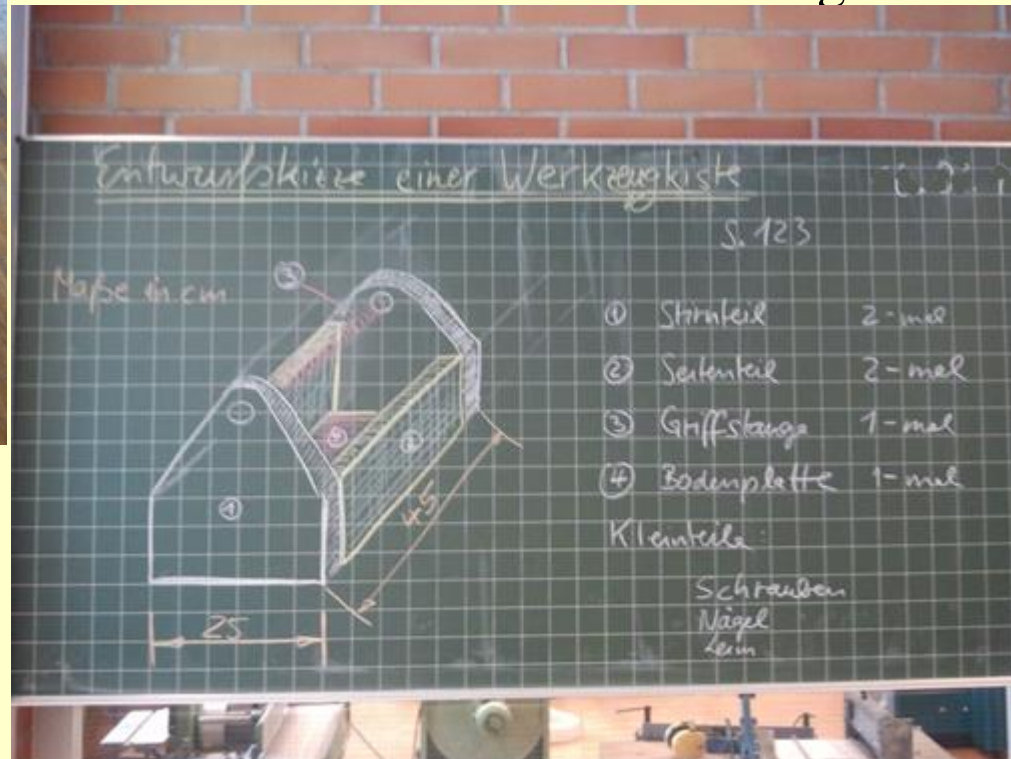 Entwurfskizze einer Werkzeugkiste
S. 123
Maße in cm
③
① Stirnteil 2-mal
② Seitenteil 2-mal
③ Griffstange 1-mal
④ Bodenplatte 1-mal
④ ②
①
45
25
Kleinteile:
Schrauben
Nägel
Leim